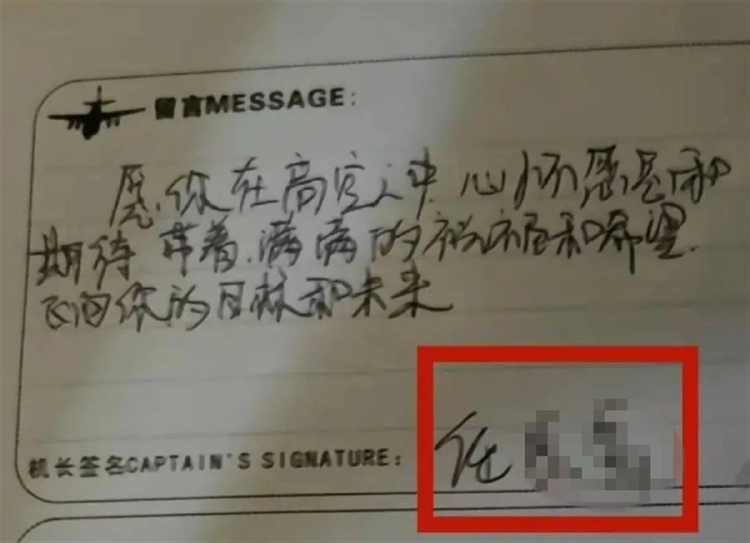 留言MESSAGE:
愿你在高空之中心怀感恩和
期待 带着满满的祝福和希望
飞向你的目标和未来
机长签名CAPTAIN'S SIGNATURE: 任